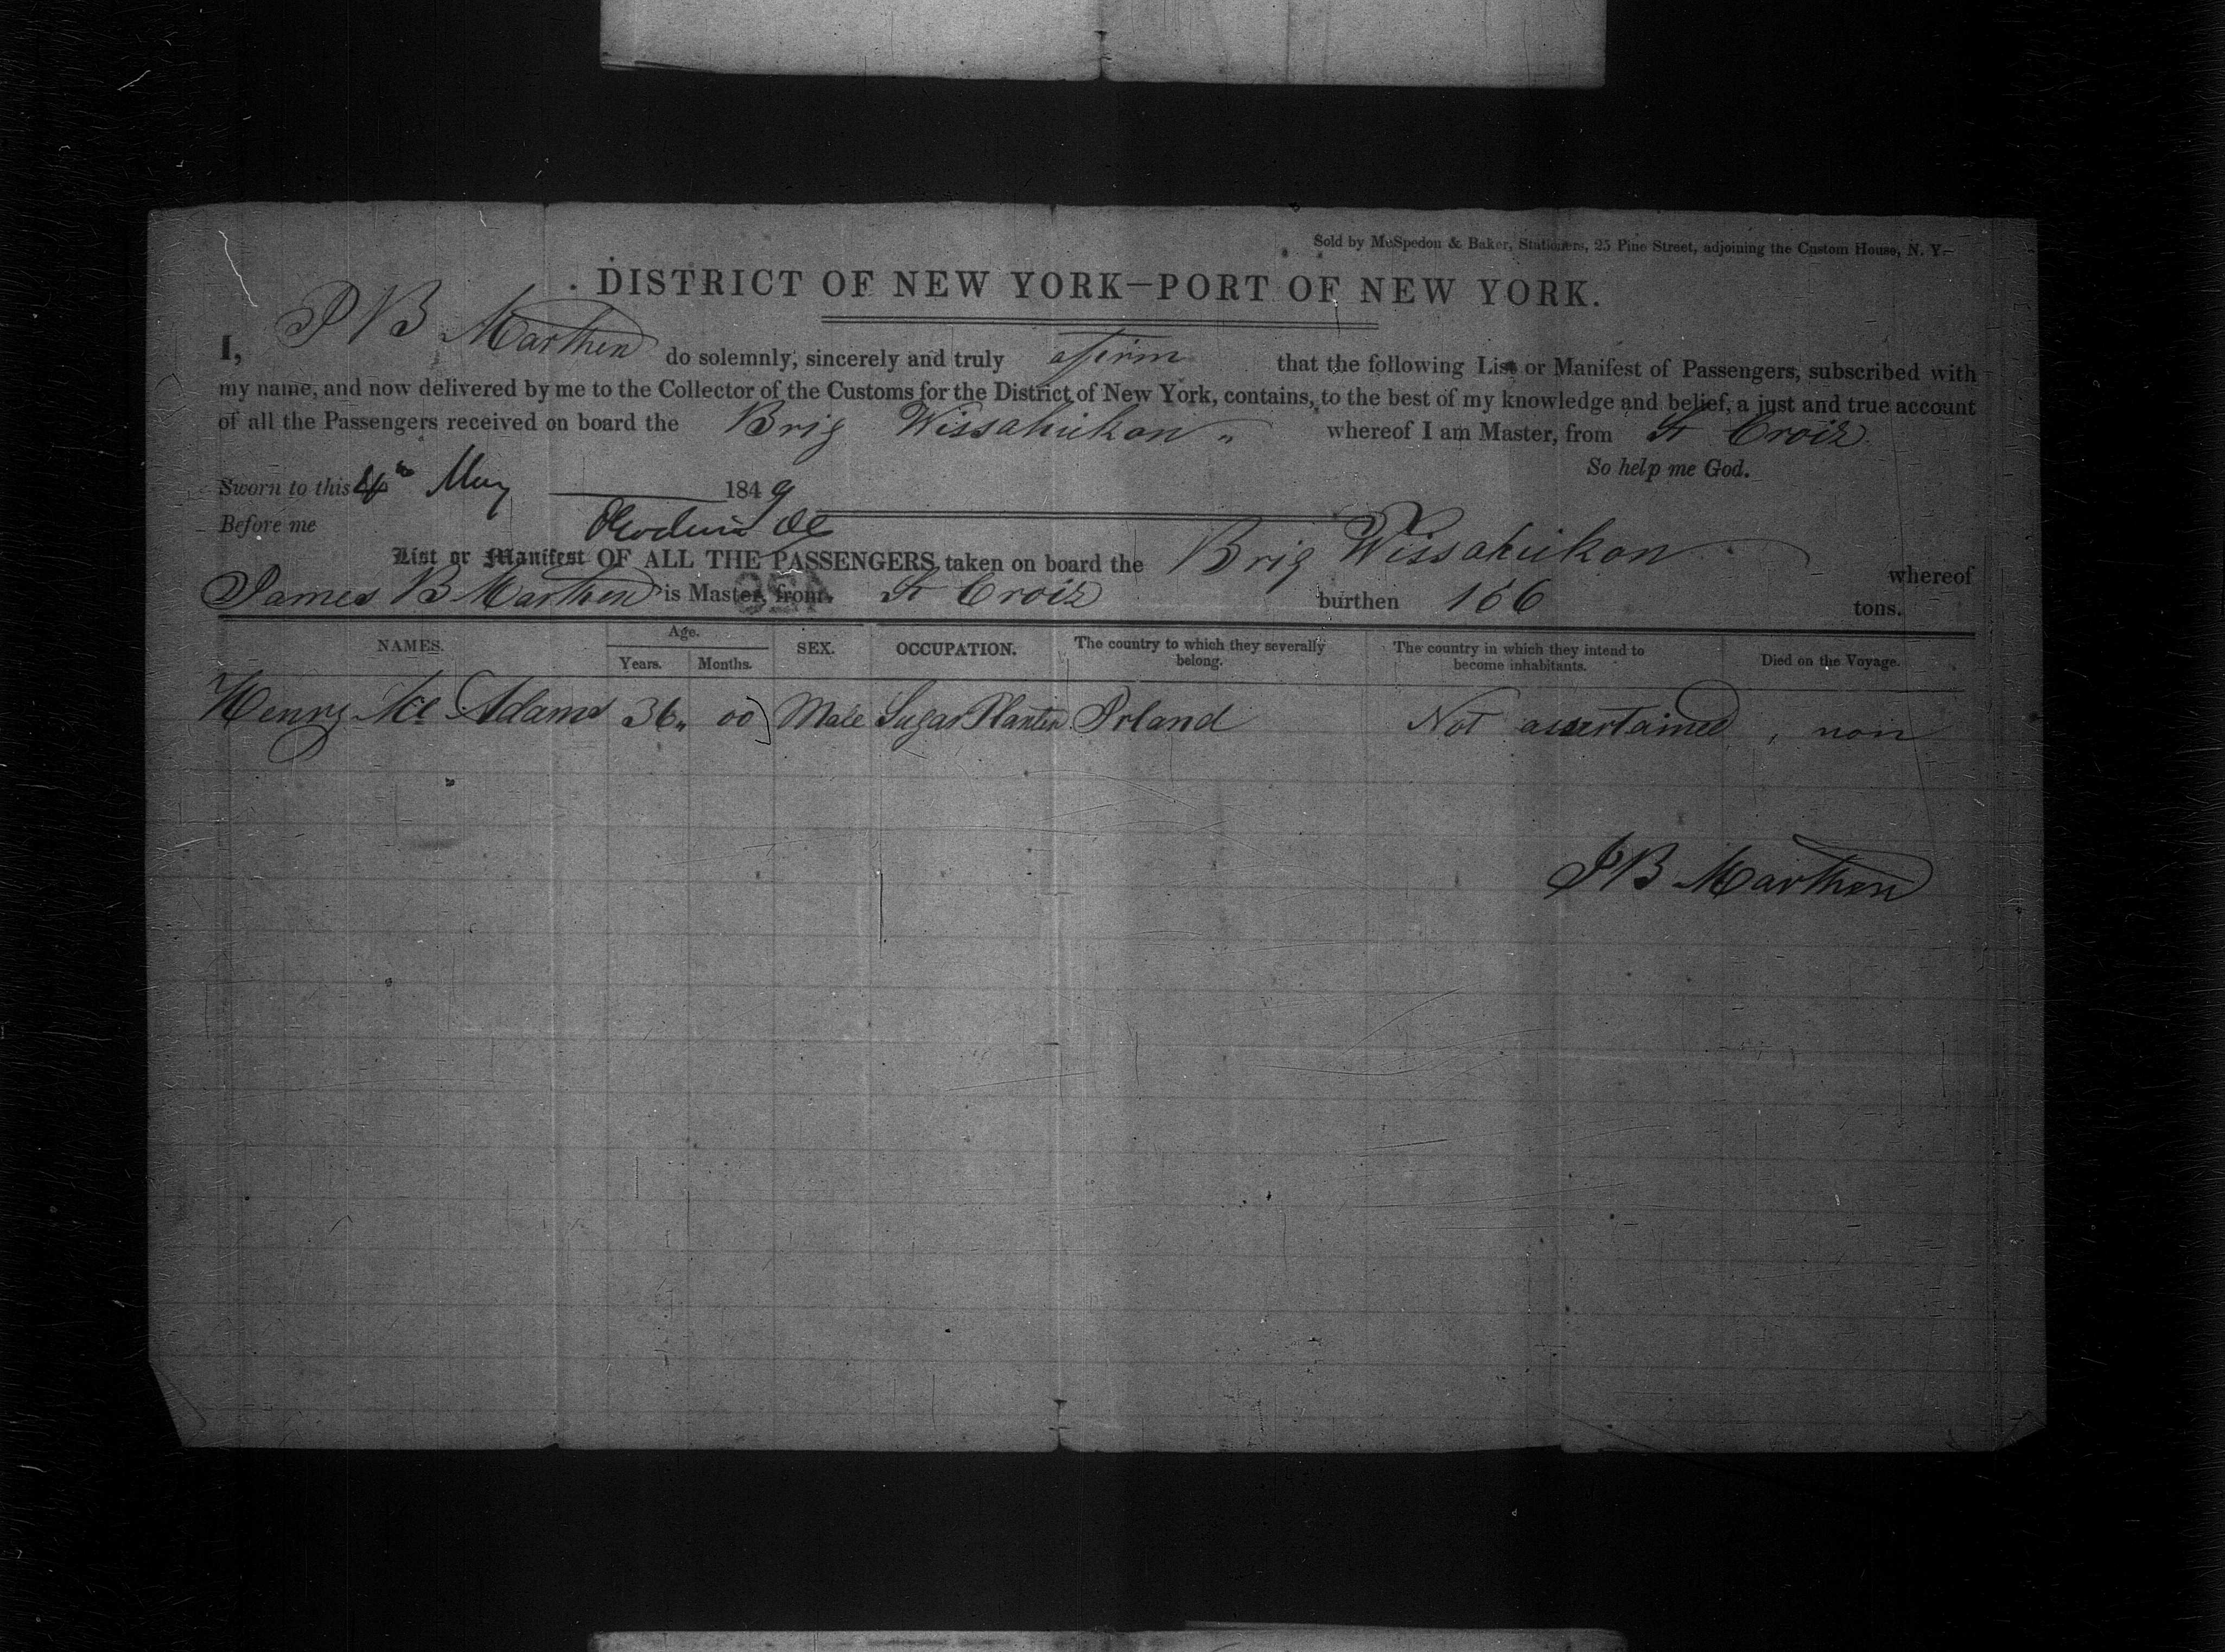 Sold by McSpedon & Baker, Stationers, 25 Pine Street, adjoining the Custom House, N. Y.
DISTRICT OF NEW YORK—PORT OF NEW YORK.
I, J B Marthen do solemnly, sincerely and truly afirm that the following List or Manifest of Passengers, subscribed with
my name, and now delivered by me to the Collector of the Customs for the District of New York, contains, to the best of my knowledge and belief, a just and true account
of all the Passengers received on board the Brig Wissahickon whereof I am Master, from St Croix
So help me God.
Sworn to this 4th May 1849
Before me
List or Manifest OF ALL THE PASSENGERS taken on board the Brig Wissahickon whereof
James B Marthen is Master, from St Croix burthen 166 tons.
NAMES. Age. Years. Months. SEX. OCCUPATION. The country to which they severally belong. The country in which they intend to become inhabitants. Died on the Voyage.
Henry Mc Adams 36 00 Male Sugar Planter Irland Not assertained, non
J B Marthen